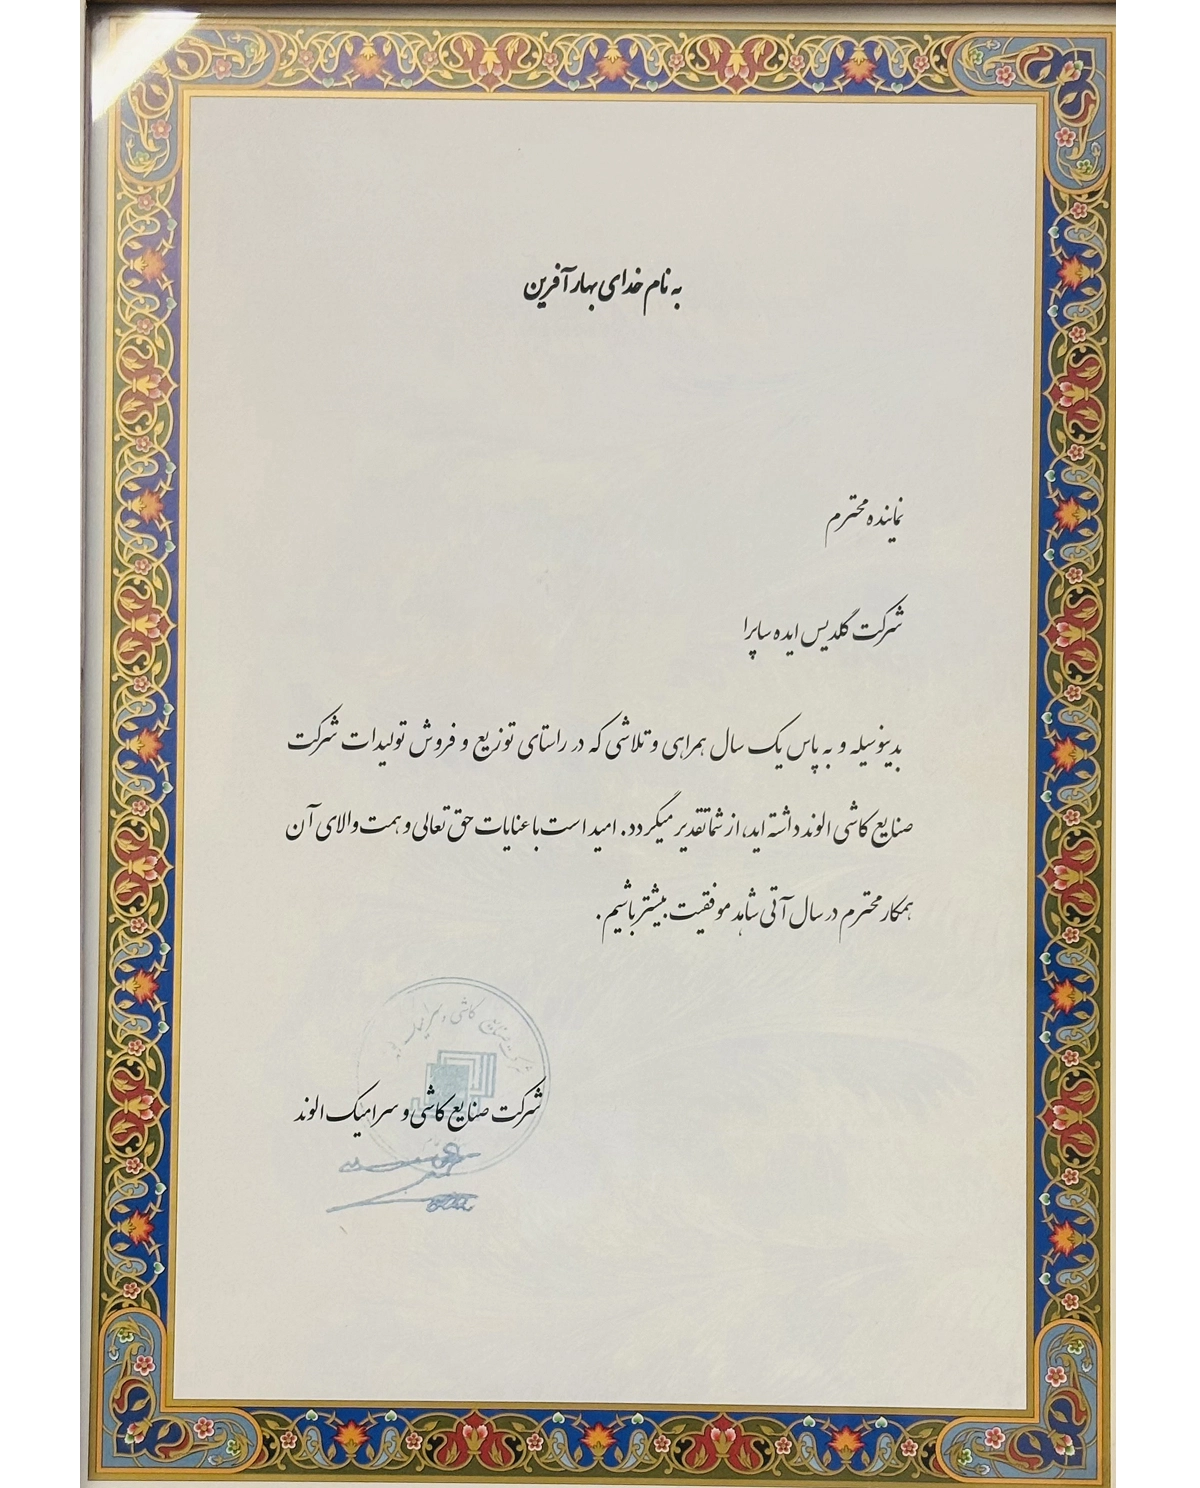 به نام خدای بهار آفرین
نماینده محترم
شرکت گلدیس ایده ساپرا
بدینوسیله و به پاس یک سال همراهی و تلاشی که در راستای توزیع و فروش تولیدات شرکت
صنایع کاشی الوند داشته اید، از شما تقدیر میگردد. امید است با عنایات حق تعالی و همت والای آن
همکار محترم در سال آتی شاهد موفقیت بیشتر باشیم.
شرکت صنایع کاشی و سرامیک الوند